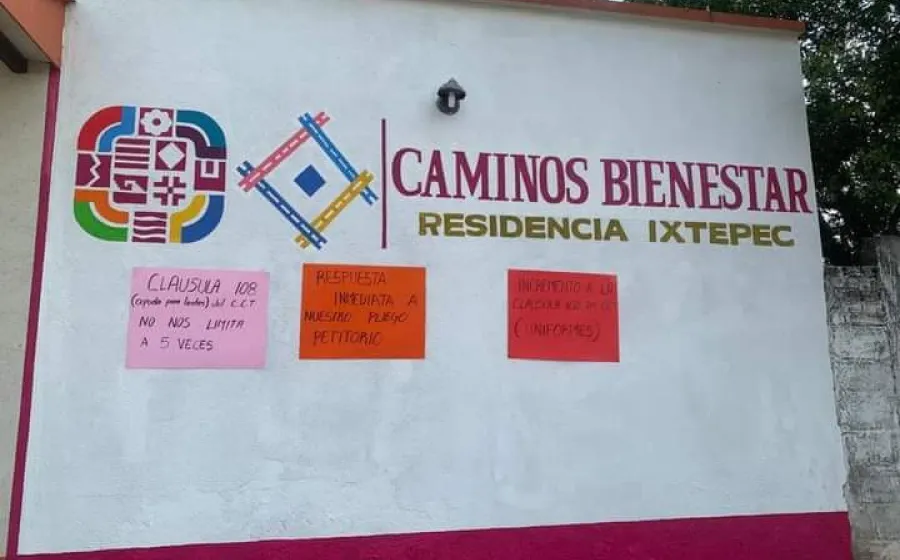 CAMINOS BIENESTAR
RESIDENCIA IXTEPEC
CLAUSULA 108
(ayuda para lentes) del C.C.T
NO NOS LIMITA
A 5 VECES
RESPUESTA
INMEDIATA A
NUESTRO PLIEGO
PETITORIO
INCREMENTO A LA
CLAUSULA
(UNIFORMES)